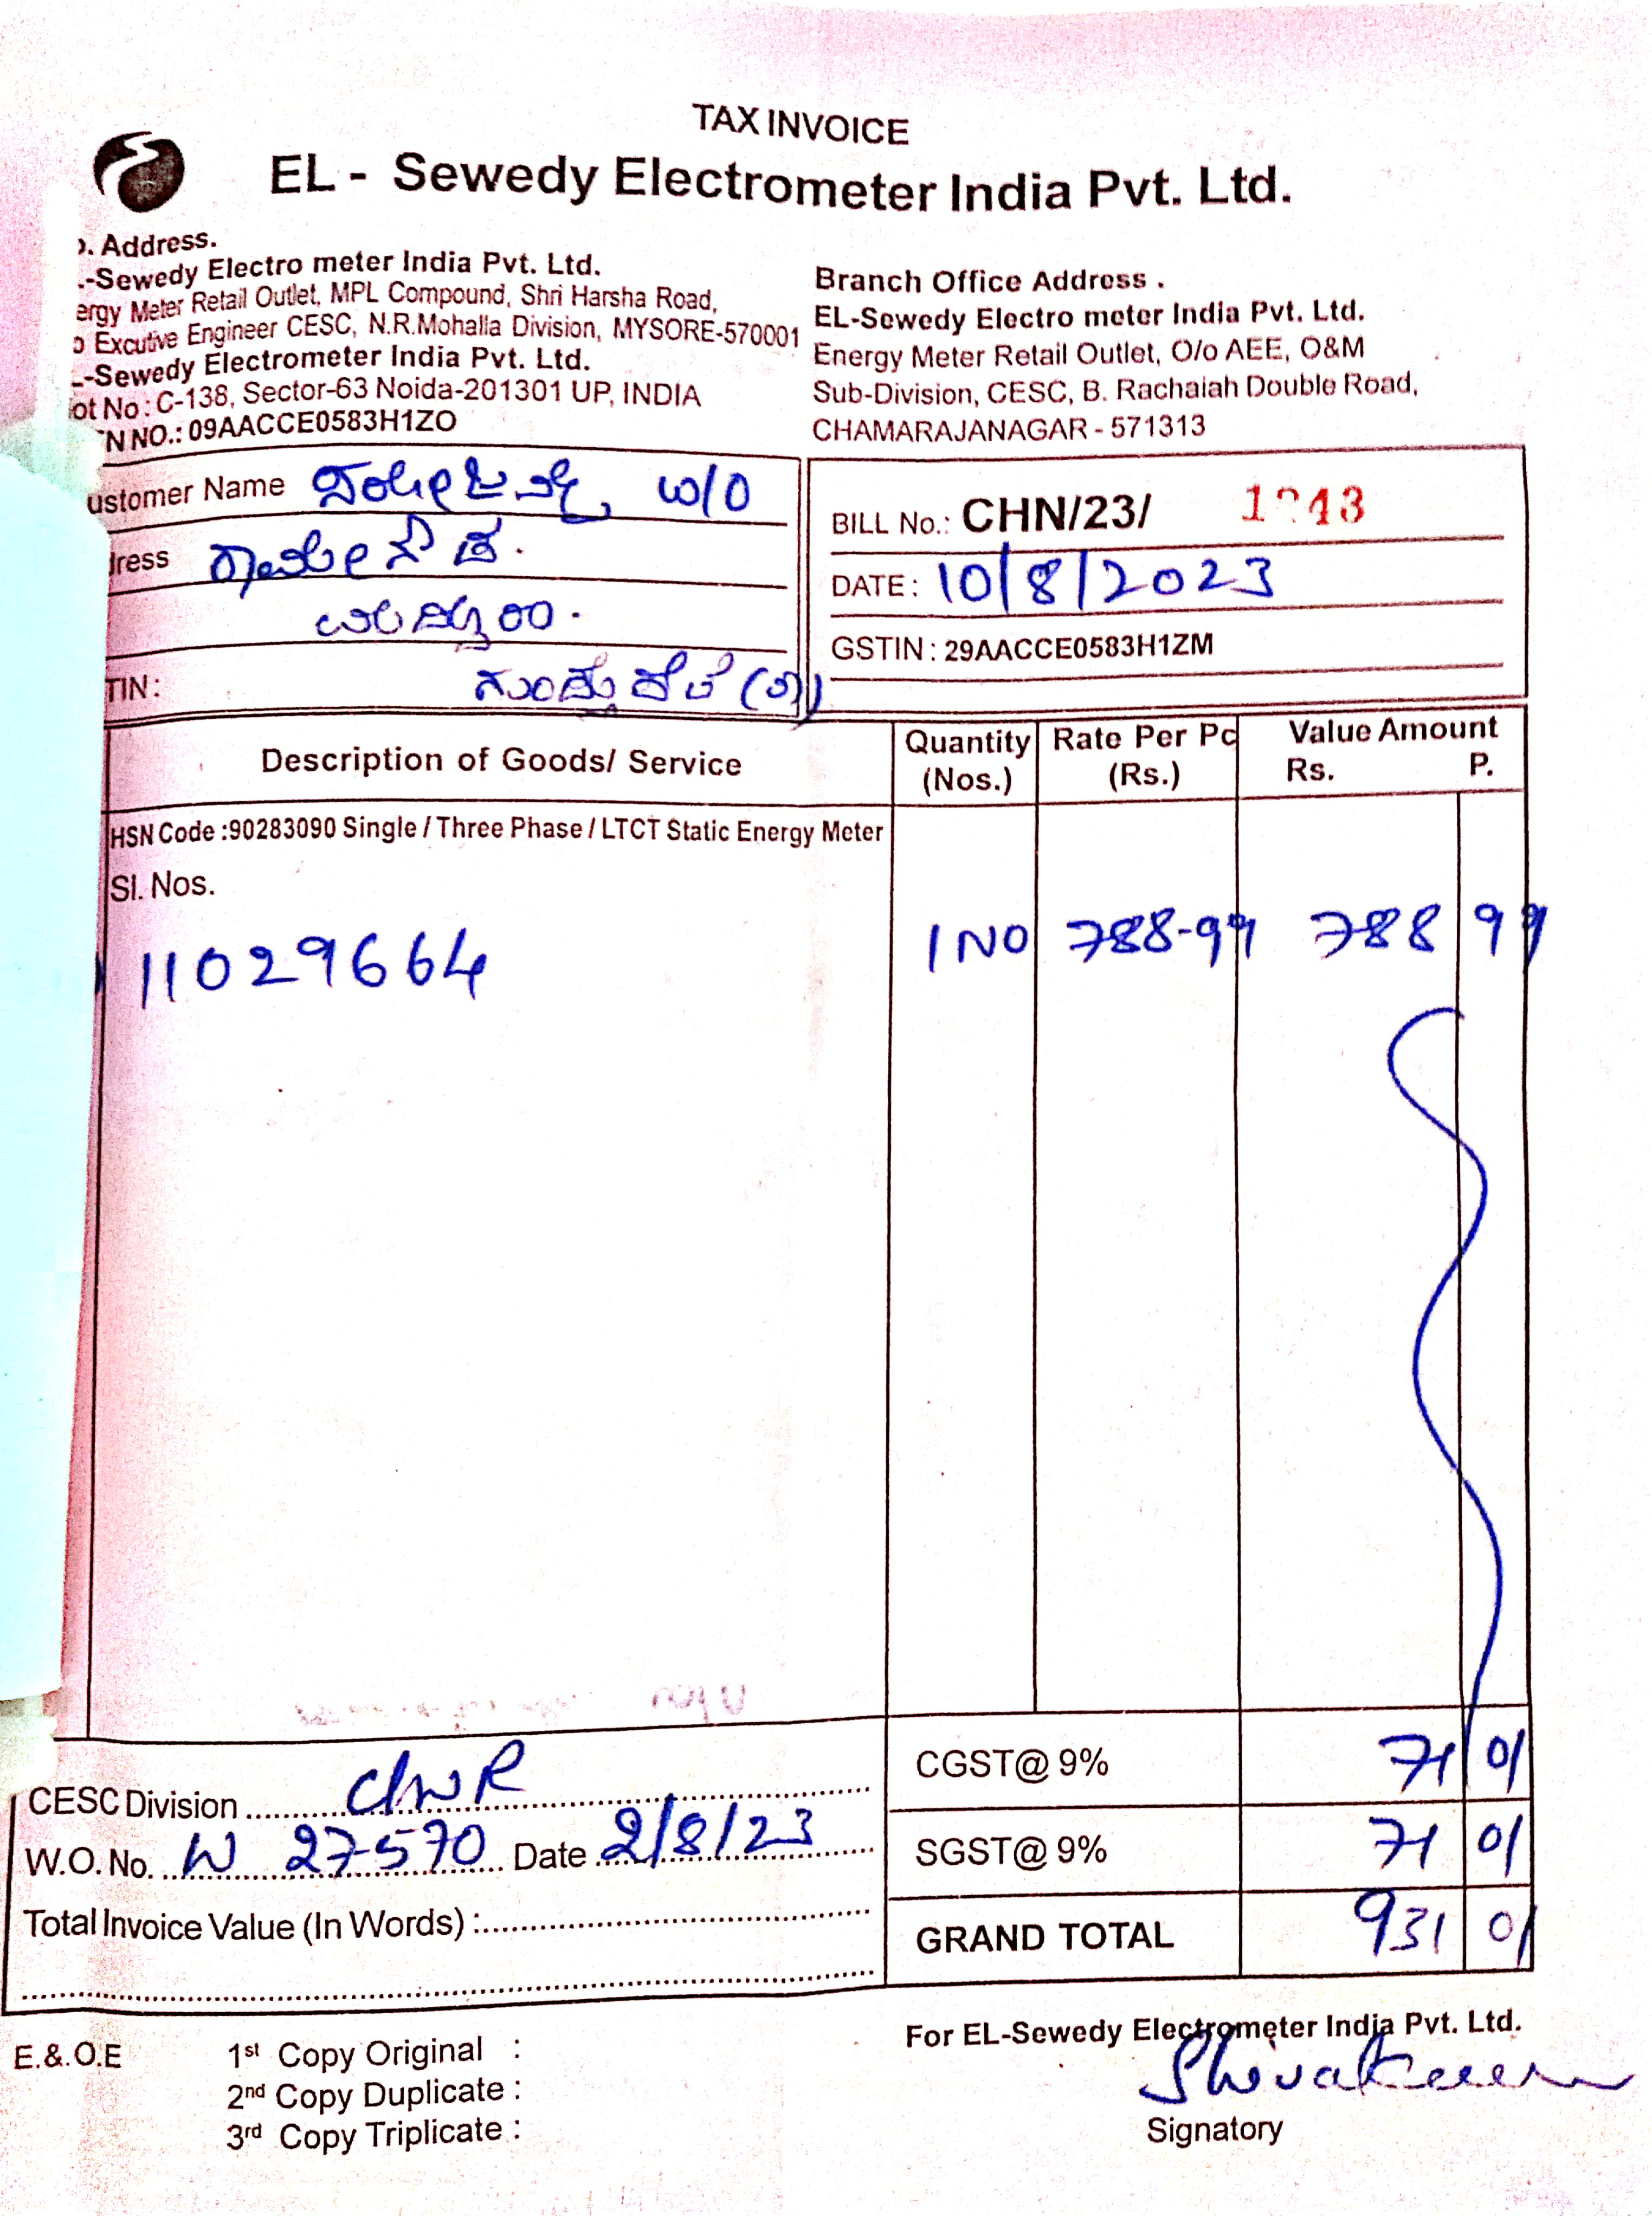 TAX INVOICE
EL - Sewedy Electrometer India Pvt. Ltd.
. Address.
-Sewedy Electro meter India Pvt. Ltd.
ergy Meter Retail Outlet, MPL Compound, Shri Harsha Road,
Excutive Engineer CESC, N.R.Mohalla Division, MYSORE-570001
-Sewedy Electrometer India Pvt. Ltd.
ot No : C-138, Sector-63 Noida-201301 UP, INDIA
N NO.: 09AACCE0583H1ZO
Branch Office Address .
EL-Sewedy Electro meter India Pvt. Ltd.
Energy Meter Retail Outlet, O/o AEE, O&M
Sub-Division, CESC, B. Rachaiah Double Road,
CHAMARAJANAGAR - 571313
ustomer Name W/O
dress
TIN :
BILL No.: CHN/23/
DATE : 10/8/2023
GSTIN : 29AACCE0583H1ZM
Description of Goods/ Service Quantity (Nos.) Rate Per Pc (Rs.) Value Amount Rs. P.
HSN Code :90283090 Single / Three Phase / LTCT Static Energy Meter
Sl. Nos.
11029664 1 NO 788-99 788 99
CGST@ 9% 71 01
CESC Division
W.O. No. W 27570 Date 2/8/23
SGST@ 9% 71 01
Total Invoice Value (In Words) :
GRAND TOTAL 931 01
For EL-Sewedy Electrometer India Pvt. Ltd.
E.&.O.E 1st Copy Original :
2nd Copy Duplicate :
3rd Copy Triplicate :
Signatory